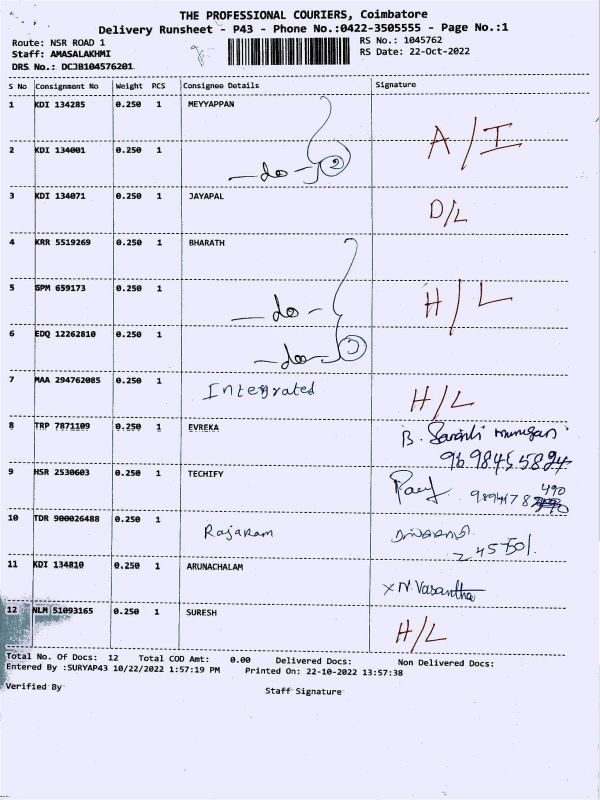 THE PROFESSIONAL COURIERS, Coimbatore
Delivery Runsheet - P43 - Phone No.:0422-3505555 - Page No.:1
Route: NSR ROAD 1
Staff: AMASALAKHMI
DRS No.: DCJB104576201
RS No.: 1045762
RS Date: 22-Oct-2022
S No Consignment No Weight PCS Consignee Details Signature
1 KDI 134285 0.250 1 MEYYAPPAN
2 KDI 134001 0.250 1 —do— 2 A/I
3 KDI 134071 0.250 1 JAYAPAL D/L
4 KRR 5519269 0.250 1 BHARATH
5 GPM 659173 0.250 1 —do— H/L
6 EDQ 12262810 0.250 1 —do—
7 MAA 294762085 0.250 1 Integrated H/L
8 TRP 7871109 0.250 1 EVREKA B.
9 HSR 2530603 0.250 1 TECHIFY
10 TDR 900026488 0.250 1 Rajaram
11 KDI 134810 0.250 1 ARUNACHALAM x N. Vasantha
12 NLM 51093165 0.250 1 SURESH H/L
Total No. Of Docs: 12 Total COD Amt: 0.00 Delivered Docs: Non Delivered Docs:
Entered By :SURYAP43 10/22/2022 1:57:19 PM Printed On: 22-10-2022 13:57:38
Verified By Staff Signature